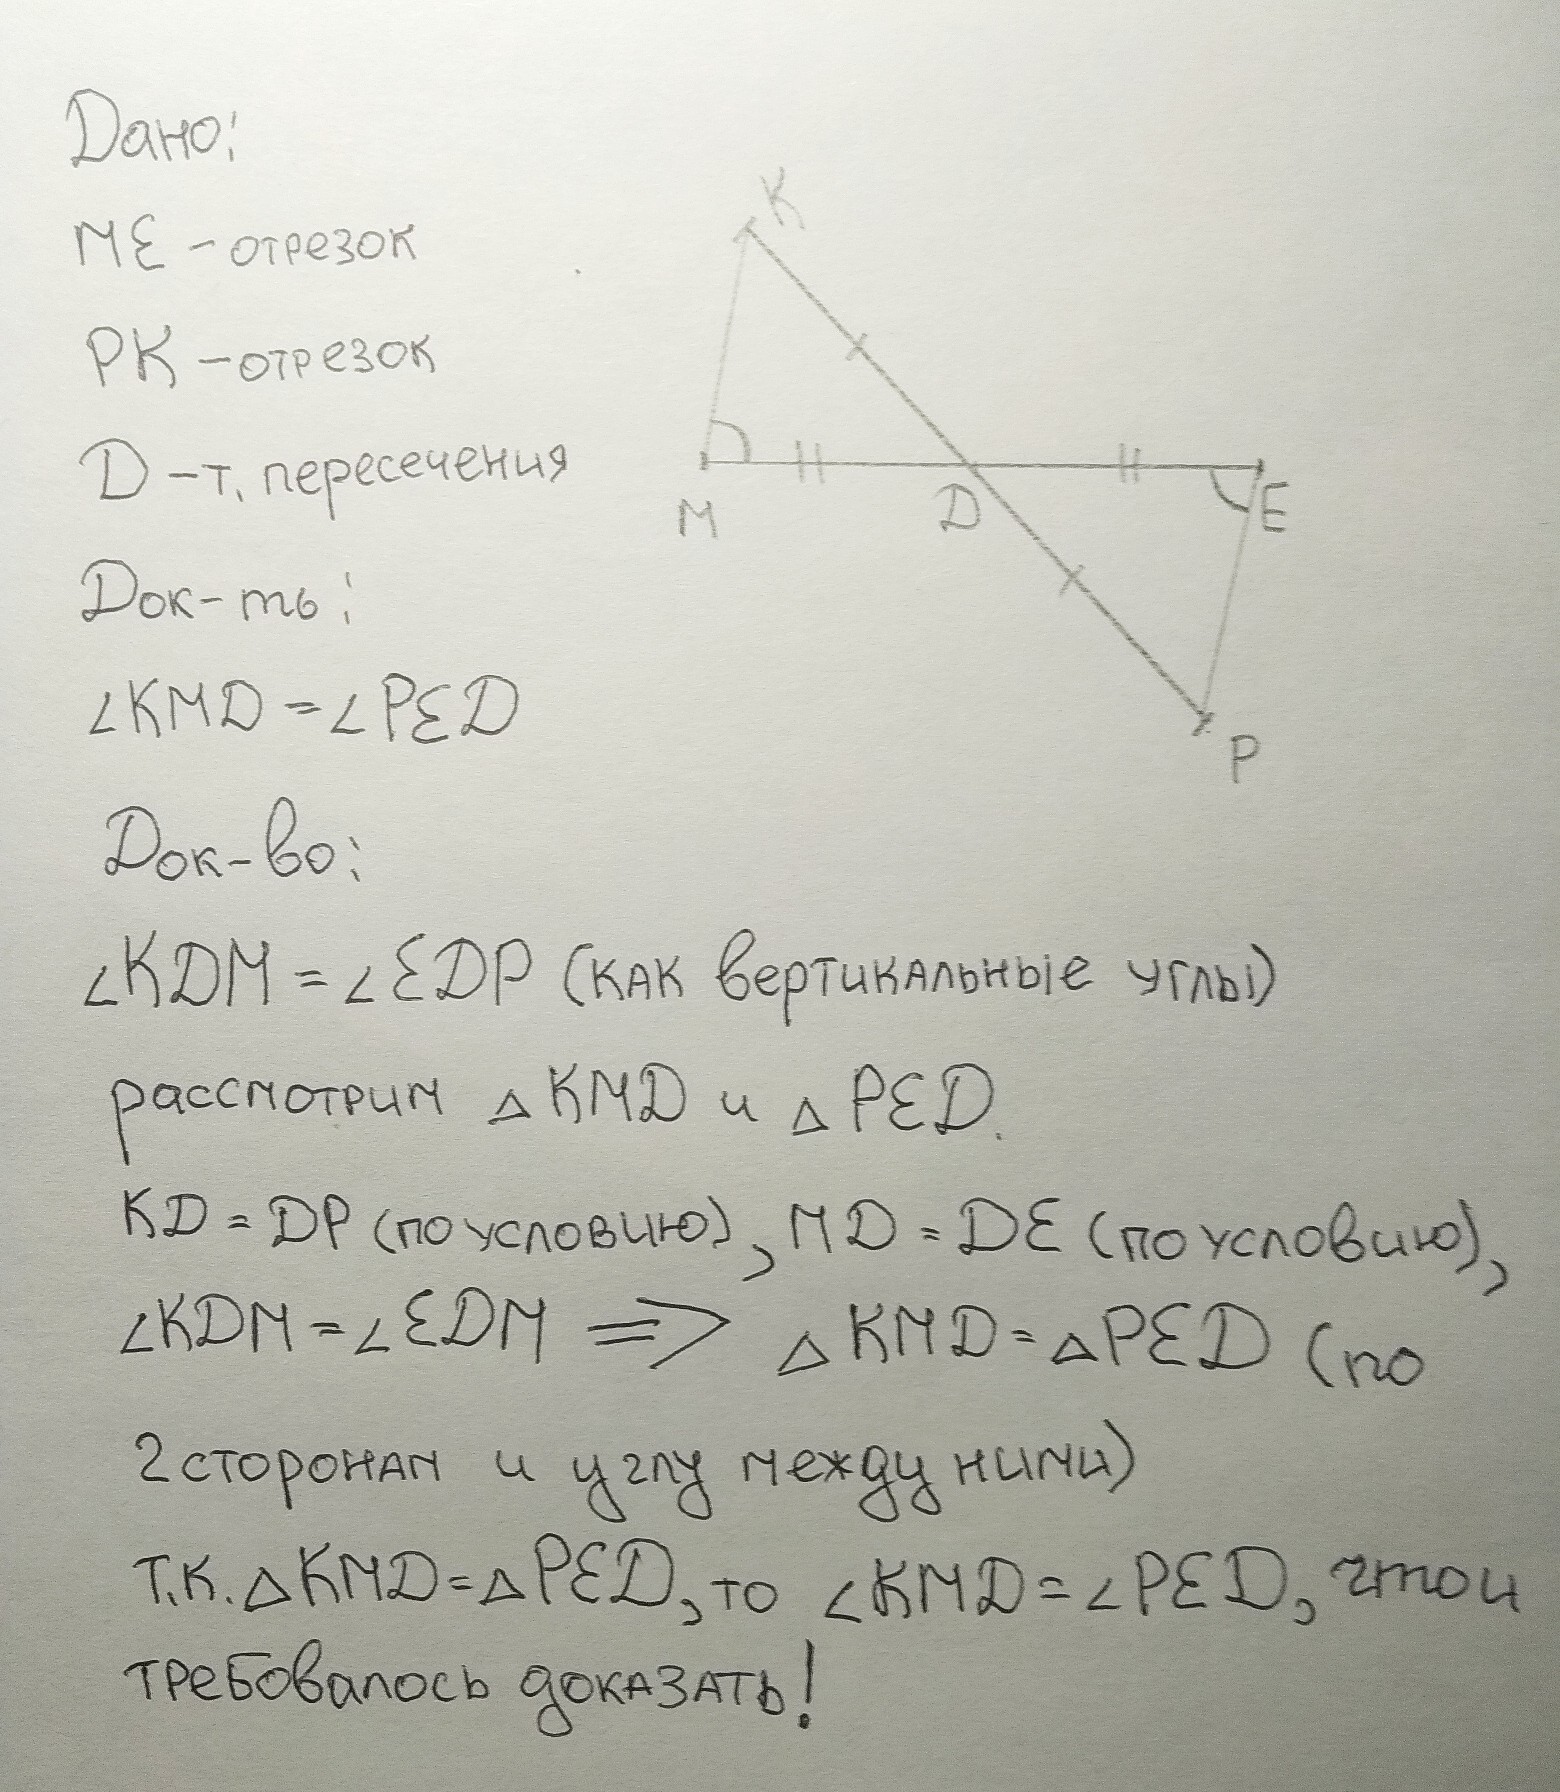 Дано:
МЕ - отрезок
РК - отрезок
D - т. пересечения
Док-ть:
∠KMD = ∠PED
Док-во:
∠KDM = ∠EDP (как вертикальные углы)
рассмотрим △KMD и △PED.
KD = DP (по условию), MD = DE (по условию),
∠KDM = ∠EDM => △KMD = △PED (по
2 сторонам и углу между ними)
т.к. △KMD = △PED, то ∠KMD = ∠PED, что и
требовалось доказать!
K
M
D
E
P